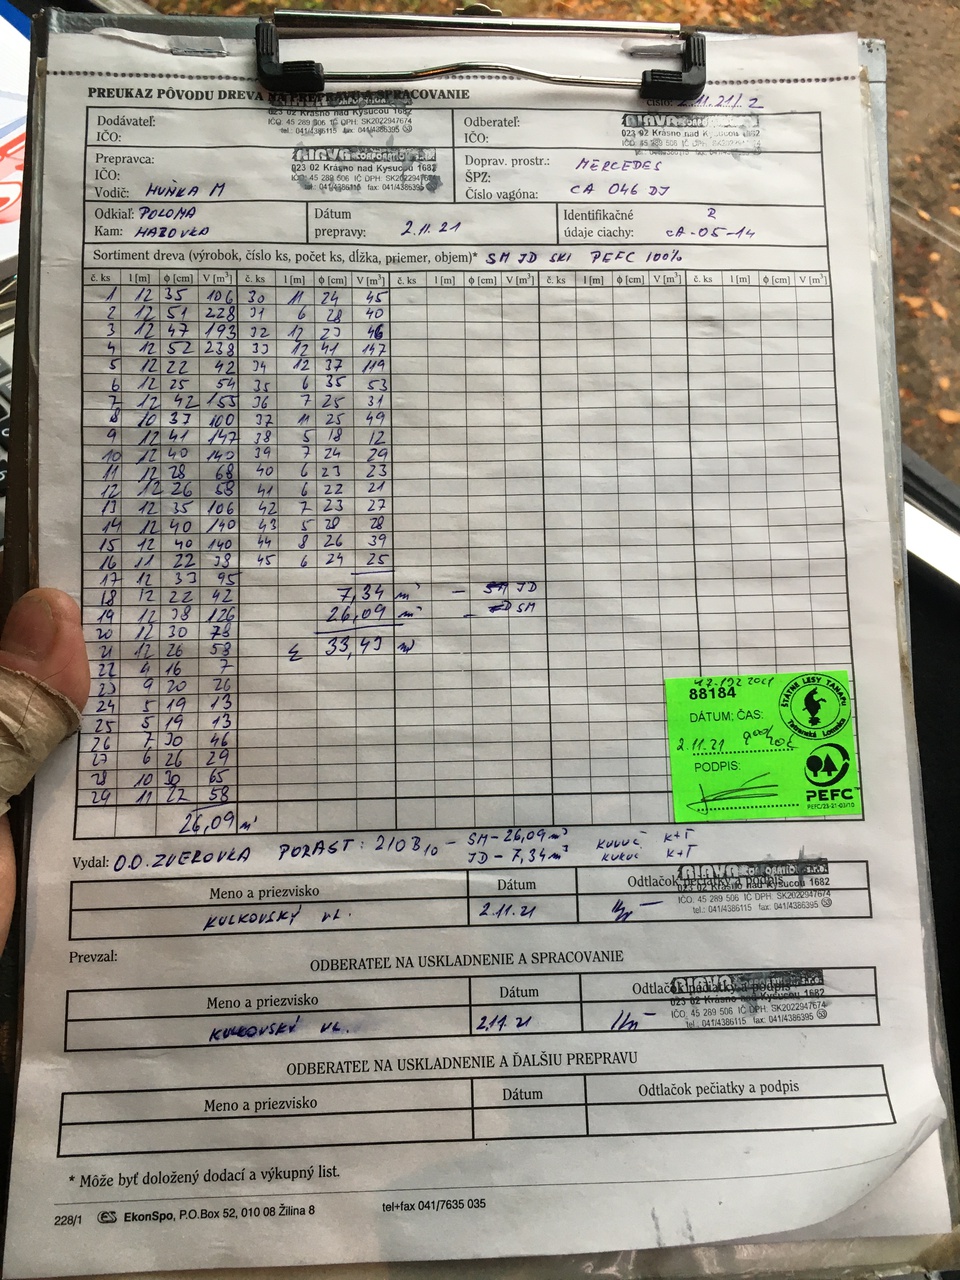 PREUKAZ PÔVODU DREVA NA PREPRAVU A SPRACOVANIE
číslo: 2.11.21/2
Dodávateľ:
IČO:
023 02 Krásno nad Kysucou 1682
IČO: 45 289 506 IČ DPH: SK2022947674
tel.: 041/4386115 fax: 041/4386395
Odberateľ:
IČO:
023 02 Krásno nad Kysucou 1682
IČO: 45 289 506 IČ DPH: SK2022947674
Prepravca:
IČO:
Vodič: HUŇKA M
023 02 Krásno nad Kysucou 1682
IČO: 45 289 506 IČ DPH: SK2022947674
tel.: 041/4386115 fax: 041/4386395
Doprav. prostr.: MERCEDES
ŠPZ:
Číslo vagóna: CA 046 DJ
Odkiaľ: POLOMA
Kam: HABOVKA
Dátum
prepravy: 2.11.21
Identifikačné R
údaje ciachy: CA-05-14
Sortiment dreva (výrobok, číslo ks, počet ks, dĺžka, priemer, objem)* SM JD SKI PEFC 100%
č. ks l [m] ϕ [cm] V [m³] č. ks l [m] ϕ [cm] V [m³] č. ks l [m] ϕ [cm] V [m³] č. ks l [m] ϕ [cm] V [m³] č. ks l [m] ϕ [cm] V [m³]
1 12 35 106 30 11 24 45
2 12 51 228 31 6 28 40
3 12 47 193 32 12 23 46
4 12 52 238 33 12 41 147
5 12 22 42 34 12 37 119
6 12 25 54 35 6 35 53
7 12 42 155 36 7 25 31
8 10 37 100 37 11 25 49
9 12 41 147 38 5 18 12
10 12 40 140 39 7 24 29
11 12 28 68 40 6 23 23
12 12 26 58 41 6 22 21
13 12 35 106 42 7 23 27
14 12 40 140 43 5 28 28
15 12 40 140 44 8 26 39
16 11 22 38 45 6 24 25
17 12 33 95
18 12 22 42 7,34 m³ - JD
19 12 38 126 26,09 m³ - SM
20 12 30 78
21 12 26 58 Σ 33,43 m³
22 4 16 7
23 9 20 26
24 5 19 13
25 5 19 13
26 7 30 46
27 6 26 29
28 10 30 65
29 11 27 58
26,09 m³
88184
ŠTÁTNE LESY TANAPU
Tatranská Lomnica
DÁTUM; ČAS:
2.11.21
PODPIS:
PEFC
PEFC/23-21-03/10
Vydal: O.O. ZVEROVKA PORAST: 210B10 - SM-26,09m³ K+T
JD-7,34m³ K+T
Meno a priezvisko Dátum Odtlačok pečiatky a podpis
023 02 Krásno nad Kysucou 1682
KULKOVSKÝ VL. 2.11.21
IČO: 45 289 506 IČ DPH: SK2022947674
tel.: 041/4386115 fax: 041/4386395
Prevzal:
ODBERATEĽ NA USKLADNENIE A SPRACOVANIE
Meno a priezvisko Dátum Odtlačok pečiatky a podpis
023 02 Krásno nad Kysucou 1682
KULKOVSKÝ VL. 2.11.21
IČO: 45 289 506 IČ DPH: SK2022947674
tel.: 041/4386115 fax: 041/4386395
ODBERATEĽ NA USKLADNENIE A ĎALŠIU PREPRAVU
Meno a priezvisko Dátum Odtlačok pečiatky a podpis
* Môže byť doložený dodací a výkupný list.
228/1 EkonSpo, P.O.Box 52, 010 08 Žilina 8 tel+fax 041/7635 035